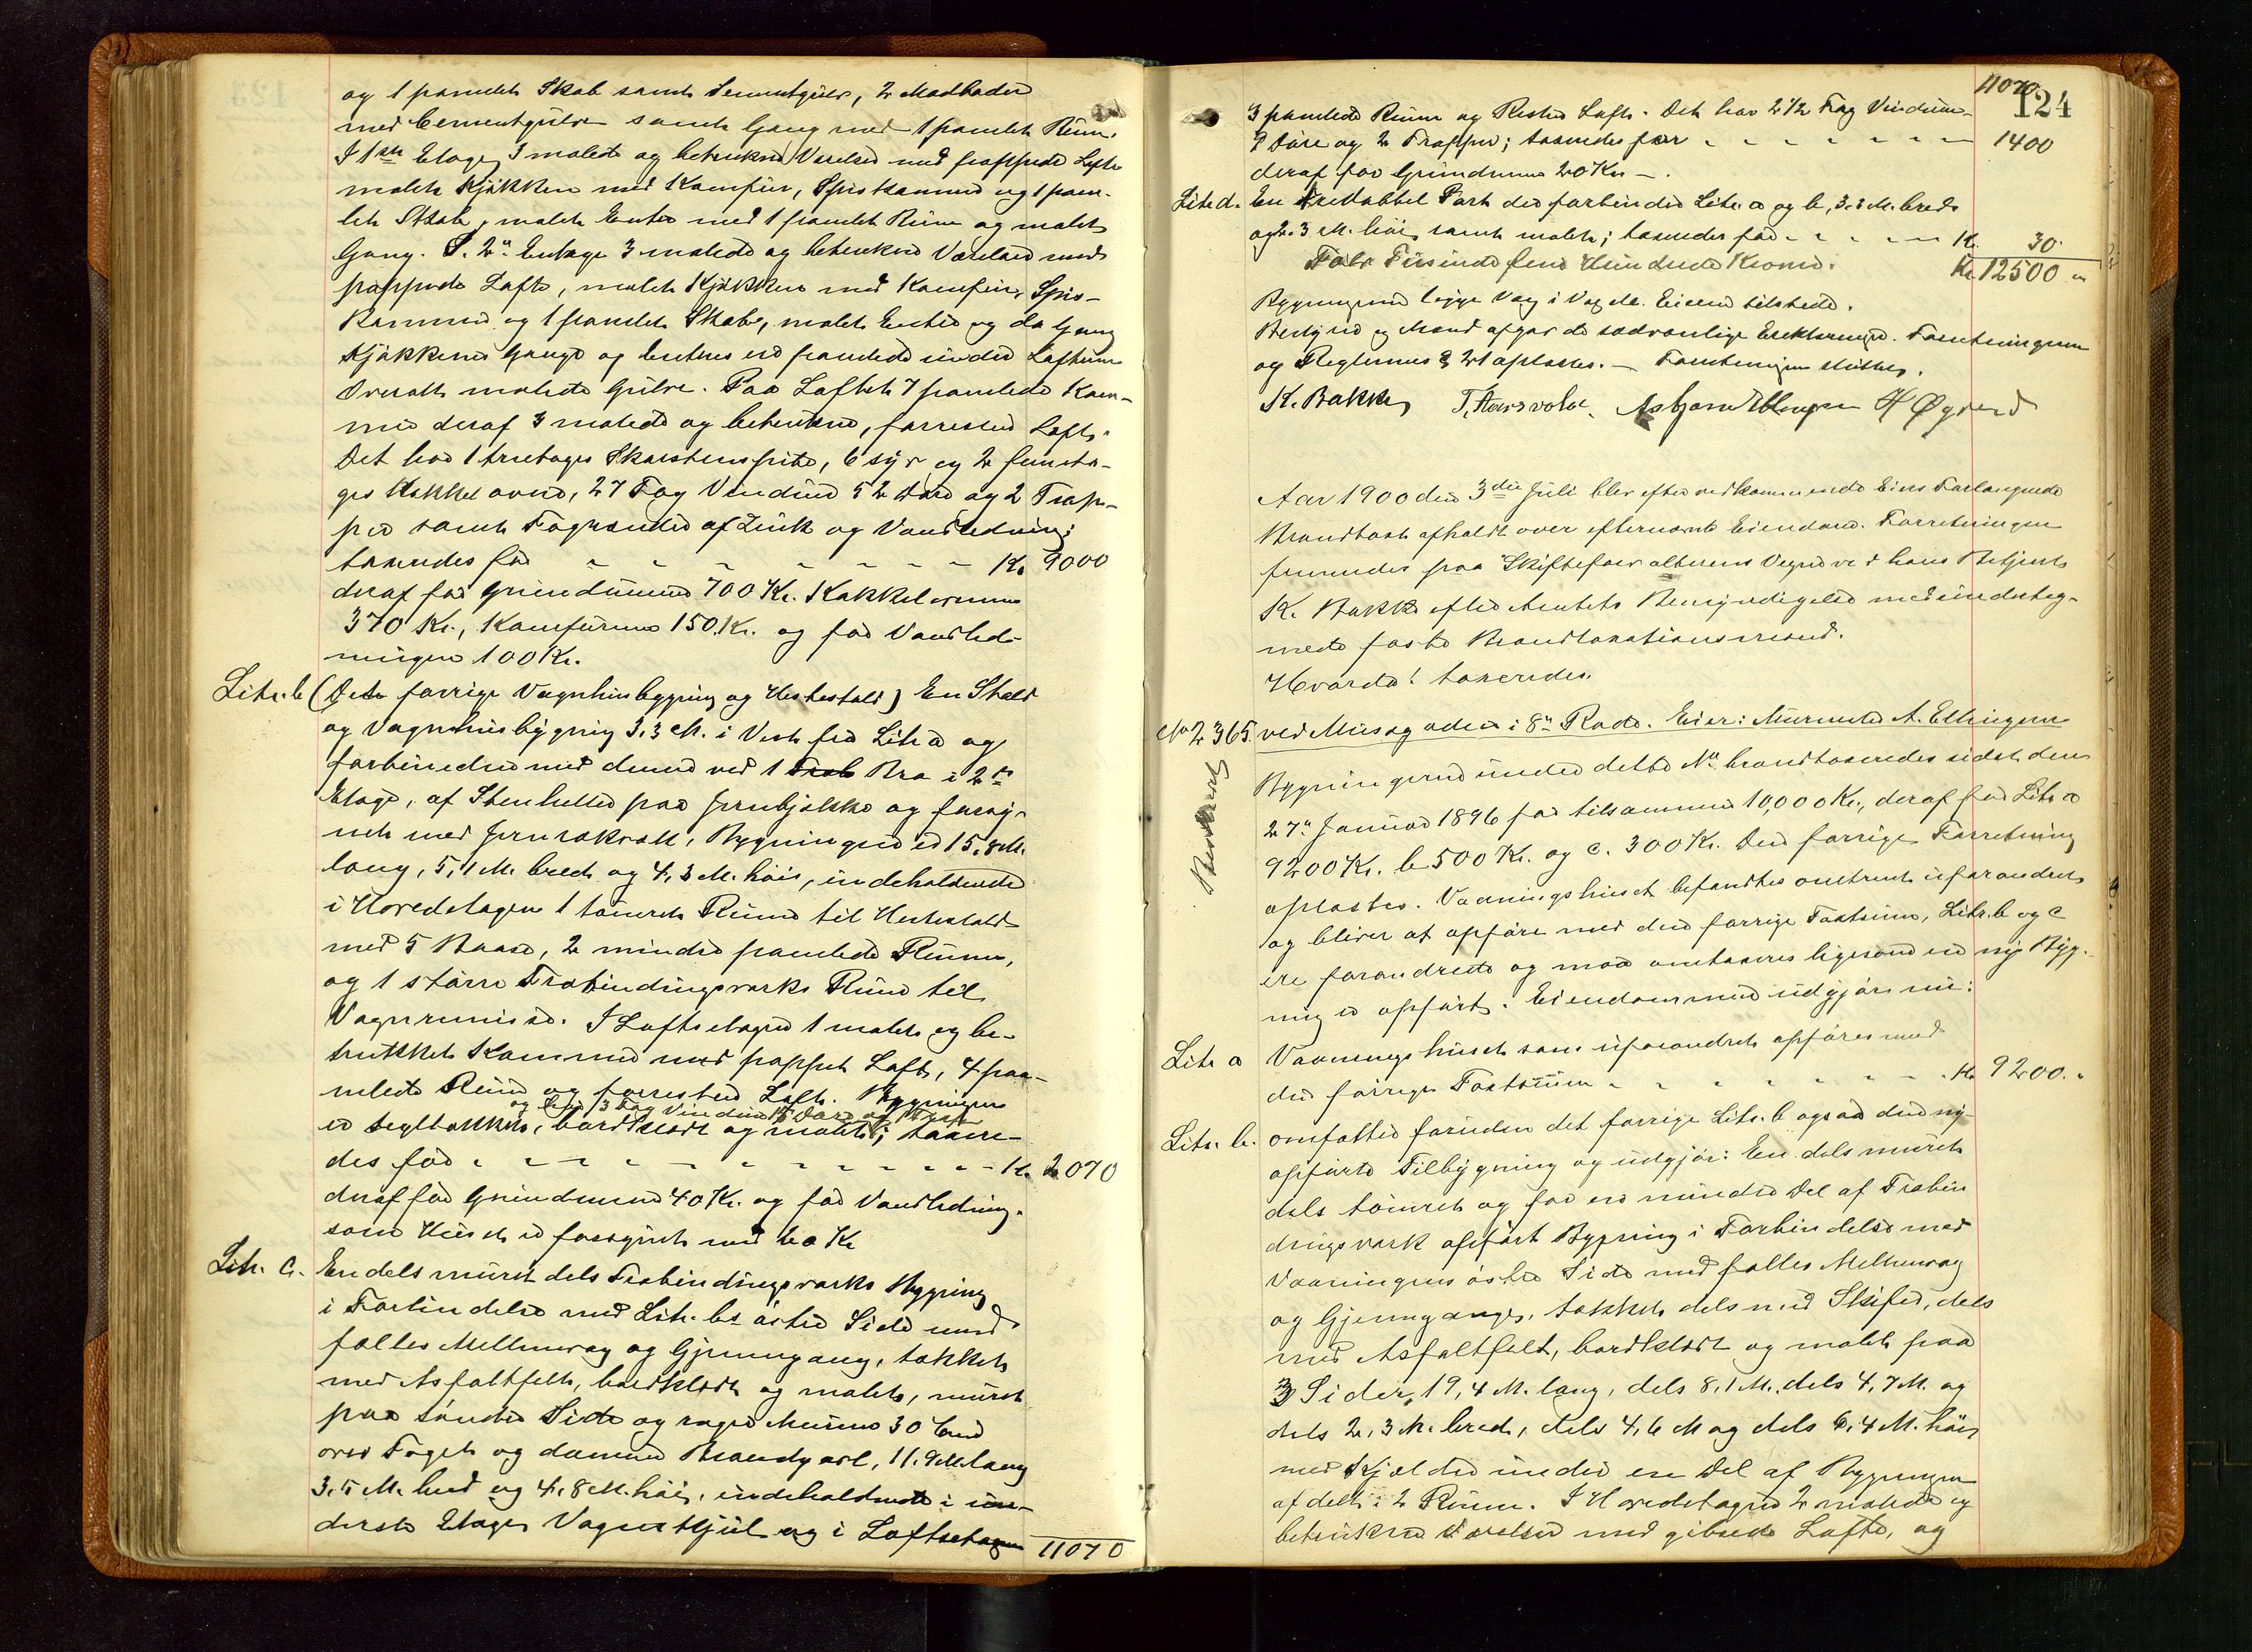 og 1 panelet Skab samt Sementgulv, 2 Madboder
med Cementgulve samt Gang med 1 panelet Rum.
I 1ste Etage 3 malede og betrukne Værelser med pappede Lofte
malet Kjøkken med Komfur, Spiskammer og 1 pane-
let Skab, malet Entre med 1 panelet Rum og malet
Gang. I 2n Etage 3 malede og betrukne Værelser med
pappede Lofte, malet Kjøkken med Komfur, Spis-
kammer og 1 panelet Skab, malet Entre og do Gang
Kjøkkener Gange og Entreer er panelede under Lofterne
Overalt malede Gulve. Paa Loftet 7 panelede Kam-
mer deraf 3 malede og betrukne, forresten Loft.
Det har 1 treetages Skorstenspibe, 6 syv og 2 femeta-
ges Kakkelovne, 27 Fag Vinduer 52 Døre og 2 Trap-
per samt Tagrender af Zink og Vandledning;
taxeredes for - - - - - - - Kr. 9000
deraf for Grundmuren 700 Kr. Kakkelovnene
370 Kr., Komfurene 150 Kr. og for Vandled-
ningen 100 Kr.
Litr. b (Den forrige Vognhusbygning og Hestestald) En Stald
og Vognhusbygning 3,3 M. i Vest fra Litr a og
forbunden med denne ved 1 Bro i 2den
Etage, af Stenheller paa Jernbjelker og forsy-
net med Jernrækværk, Bygningen er 15,8 M.
lang, 5,1 M. bred og 4,3 M. høi, indeholdende
i Hovedetagen 1 tømret Rum til Hestestald
med 5 Baase, 2 mindre panelede Rum,
og 1 større Træbindingsværks Rum til
Vognremisse. I Loftsetagen 1 malet og be-
trukket Kammer med pappet Loft, 4 paa-
nelede Rum og forresten Loft. Bygningen
og har 13 Fag Vinduer 15 Døre og 1 Trap
er tegltækket, bordklædt og malet; taxere-
des for - - - - - - - - - - Kr. 2070
deraf for Grundmuren 40 Kr. og for Vandledning,
som Huset er forsynet med 60 Kr
Litr. c. En dels muret dels Træbindingsværks Bygning
i Forbindelse med Litr. bs østre Side med
fælles Mellemvæg og Gjennemgang, tækket
med Asfaltfelt, bordklædt og malet, muret
paa søndre Side og rager Muren 30 Cm
over Taget og danner Brandgavl, 11,9 M. lang
3,5 M. bred og 4,8 M. høi, indeholdende i un-
derste Etage Vognskjul og i Loftsetagen
11070
11070
124
3 panelede Rum og Resten Loft. Det har 2 1/2 Fag Vinduer
9 Døre og 2 Trapper; taxeredes for - - - - - - - 1400
deraf for Grundmuren 20 Kr -.
Litr d. En Port der forbinder Litr. a og b, 3,3 M. bred
og 2,3 M. høi, samt malet; taxeredes for - - - - - Kr. 30
Tolv Tusinde fem Hundrede Kroner. Kr 12500 "
Bygningerne ligge Væg i Væg do. Eieren tilstede.
Bestyrer og Mænd afgav de sædvanlige Erklæringer. Forretningen
og Reglernes § 21 oplæstes. - Forretningen sluttes.
K. Bakke T. Aarsvold. H Øgreid
Aar 1900 den 3die Juli blev efter vedkommende Eiers Forlangende
Brandtaxt afholdt over efternævnte Eiendom. Forretningen
fremmedes paa Skifteforvalterens Vegne ved hans Betjent
K. Bakke efter Amtets Bemyndigelse med underteg-
nede faste Brandtaxationsmænd.
Hvorda! taxeredes.
No 2 365. ved Musegaden i 8n Rode. Eier: Murmester A. Ellingsen
Bygningerne under dette No. brandtaxeredes sidst den
27n Januar 1896 for tilsammen 10,000 Kr., deraf for Litr. a
9200 Kr. b 500 Kr. og c. 300 Kr. Den forrige Forretning
oplæstes. Vaaningshuset befandtes omtrent uforandret
og bliver at opføre med den forrige Taxtsum, Litr. b og c
ere forandrede og maa omtaxeres ligesom en ny Byg-
ning er opført. Eiendommen udgjør nu:
Litr a Vaaningshuset som uforandret opføres med
den forrige Taxtsum - - - - - - - Kr 9200. "
Litr. b. omfatter foruden det forrige Litr. b ogsaa den ny-
opførte Tilbygning og udgjør: En dels muret
dels tømret og for en mindre Del af Træbin
dingsværk opført Bygning i Forbindelse med
Vaaningens østre Side med fælles Mellemvæg
og Gjennemgange, tækket dels med Skifer, dels
med Asfaltfelt, bordklædt og malet paa
3 Sider, 19,4 M. lang, dels 8,1 M. dels 4,7 M. og
dels 2,3 M. bred, dels 4,6 M og dels 6,4 M. høi
med Kjælder under en Del af Bygningen
afdelt i 2 Rum. I Hovedetagen 2 malede og
betrukne Værelser med gibsede Lofte, og